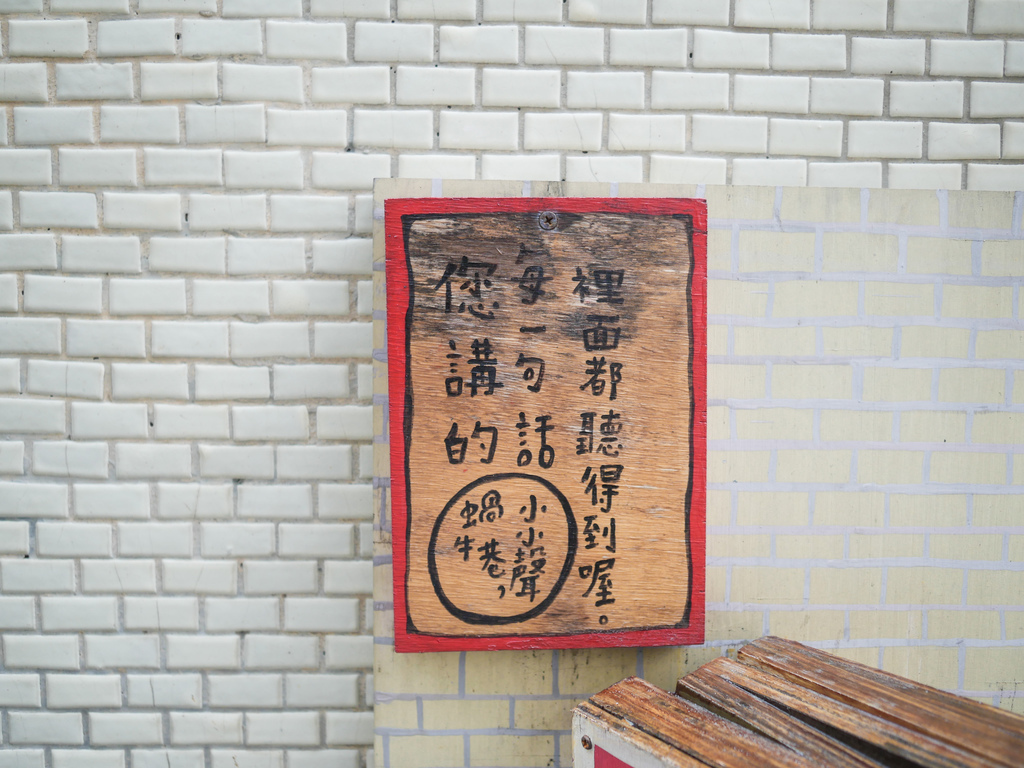 您講的
每一句話
裡面都聽得到喔。
蝸牛巷，
小小聲